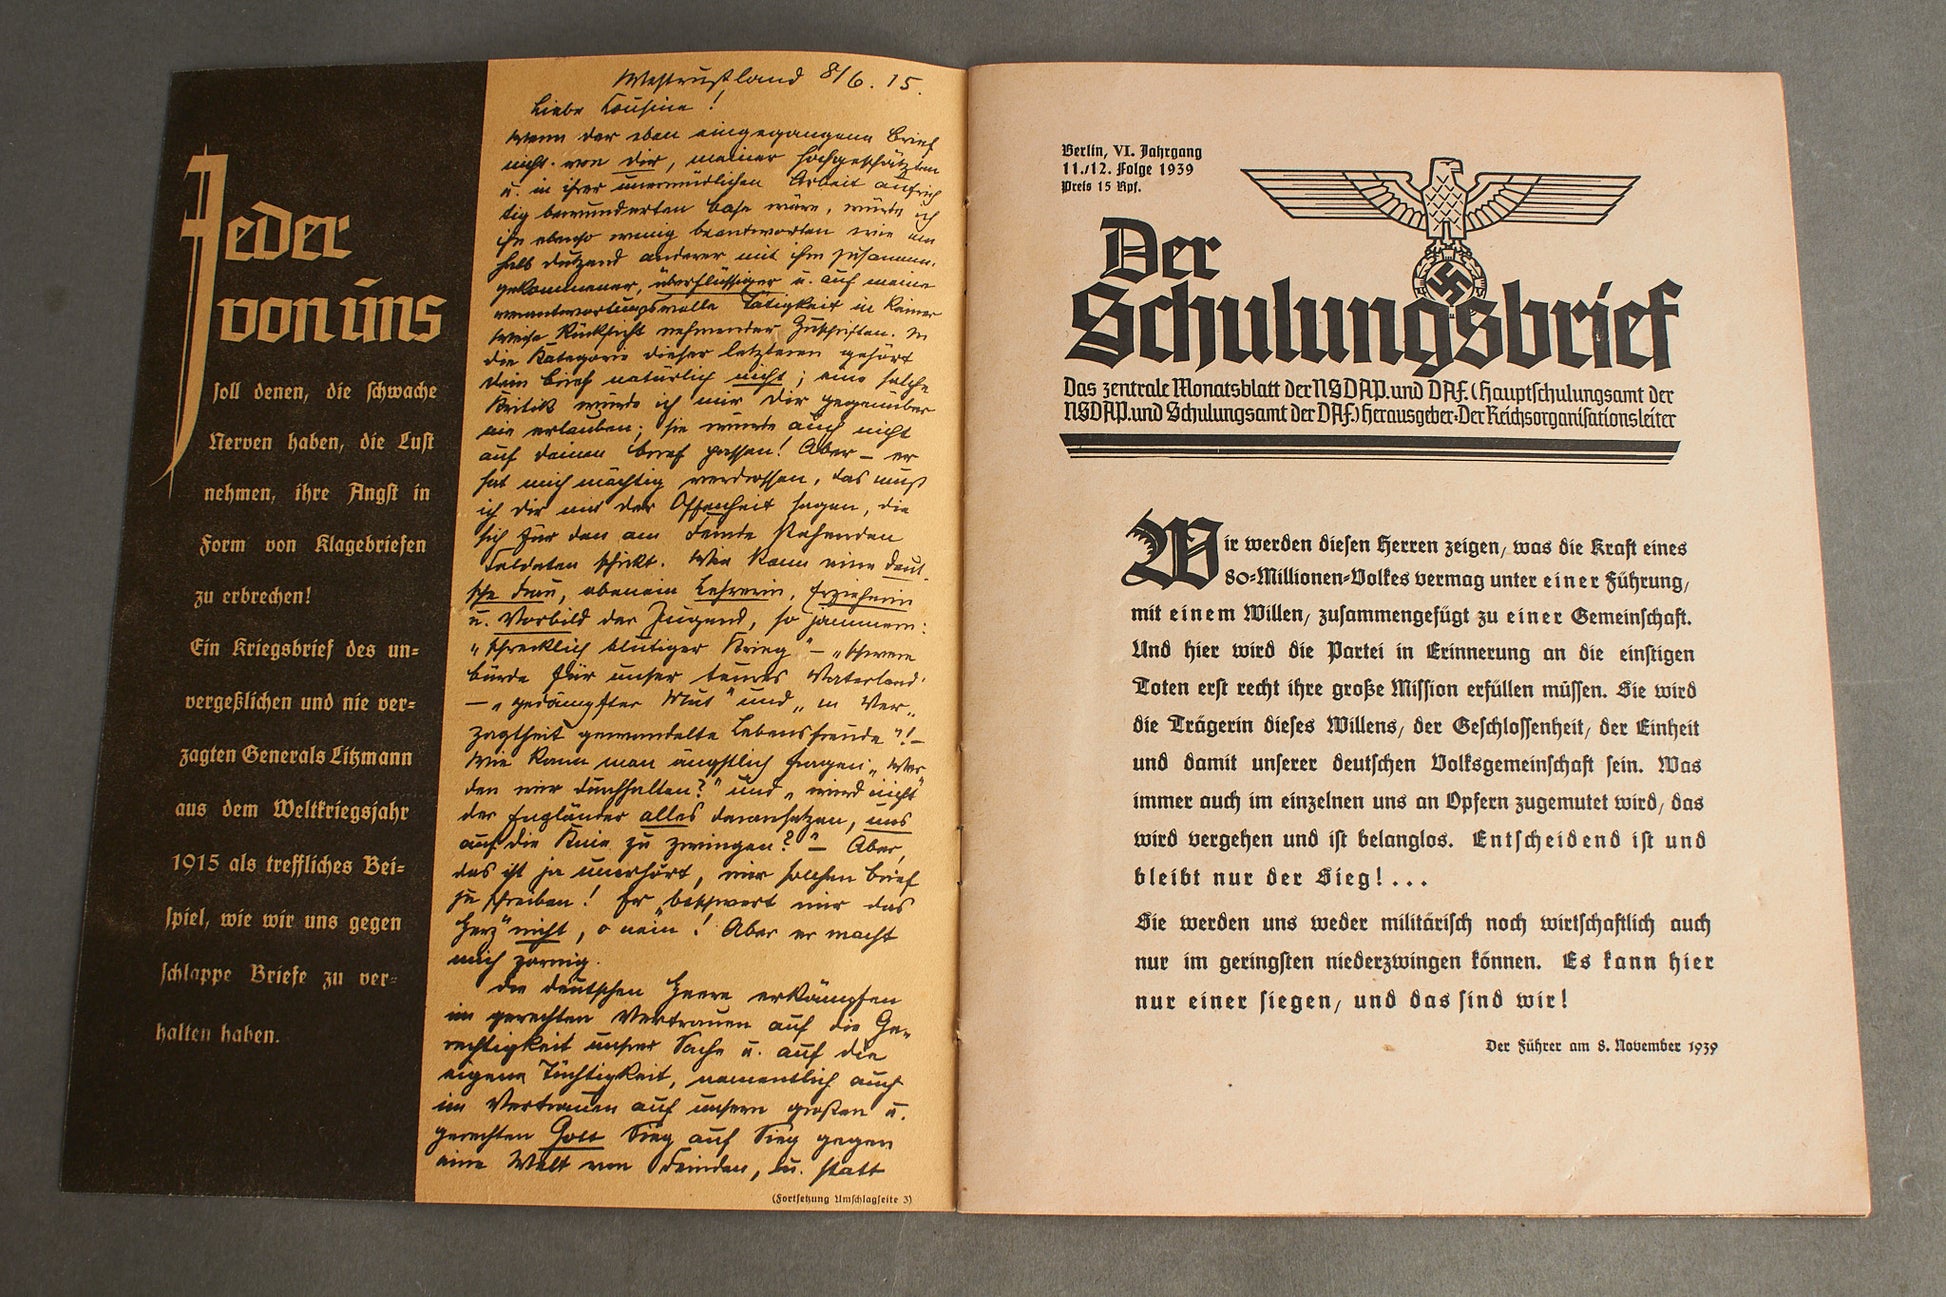 Jeder
von uns
soll denen, die schwache
Nerven haben, die Lust
nehmen, ihre Angst in
Form von Klagebriefen
zu erbrechen!
Ein Kriegsbrief des un=
vergeßlichen und nie ver=
zagten Generals Litzmann
aus dem Weltkriegsjahr
1915 als treffliches Bei=
spiel, wie wir uns gegen
schlappe Briefe zu ver=
halten haben.
Westrußland 8/6. 15.
Liebe Cousine!
Wenn der eben eingegangene Brief
nicht von dir, meiner hochgeschätzten
u. in ihrer unermüdlichen Arbeit aufrich
tig bewunderten Base wäre, würde ich
ihn ebenso wenig beantworten wie ein
halb Dutzend anderer mit ihm zusammen-
gekommener, überflüssiger u. auf meine
verantwortungsvolle Tätigkeit in keiner
Weise Rücksicht nehmender Zuschriften. In
die Kategorie dieser letzteren gehört
dein Brief natürlich nicht; eine solche
Kritik würde ich mir dir gegenüber
nie erlauben; sie würde auch nicht
auf deinen Brief passen! Aber – er
hat mich mächtig verdrossen, das muß
ich dir mit der Offenheit sagen, die
sich für den am Feinde stehenden
Soldaten schickt. Wie kann eine deut-
sche Frau, obenein Lehrerin, Erzieherin
u. Vorbild der Jugend, so jammern:
"Schrecklich blutiger Krieg" – "Schwere
Bürde für unser teures Vaterland"
– "gedämpfter Mut" und "in Ver-
zagtheit gewandelte Lebensfreude"! –
Wie kann man ängstlich fragen: "Wer
den wir durchhalten?" und "wird nicht
der Engländer alles daransetzen, uns
auf die Knie zu zwingen?" – Aber,
das ist ja unerhört, mir solchen Brief
zu schreiben! Er beschwert mir das
Herz nicht, o nein! Aber er macht
mich zornig.
Die deutschen Heere erkämpfen
im gerechten Vertrauen auf die Ge-
rechtigkeit unsrer Sache u. auf die
eigene Tüchtigkeit, namentlich auch
im Vertrauen auf unsern großen u.
gerechten Gott Sieg auf Sieg gegen
eine Welt von Feinden, u. statt
(Fortsetzung Umschlagseite 3)
Berlin, VI. Jahrgang
11./12. Folge 1939
Preis 15 Rpf.
Der
Schulungsbrief
Das zentrale Monatsblatt der NSDAP. und DAF. (Hauptschulungsamt der
NSDAP. und Schulungsamt der DAF.) Herausgeber: Der Reichsorganisationsleiter
Wir werden diesen Herren zeigen, was die Kraft eines
80=Millionen=Volkes vermag unter einer Führung,
mit einem Willen, zusammengefügt zu einer Gemeinschaft.
Und hier wird die Partei in Erinnerung an die einstigen
Toten erst recht ihre große Mission erfüllen müssen. Sie wird
die Trägerin dieses Willens, der Geschlossenheit, der Einheit
und damit unserer deutschen Volksgemeinschaft sein. Was
immer auch im einzelnen uns an Opfern zugemutet wird, das
wird vergehen und ist belanglos. Entscheidend ist und
bleibt nur der Sieg! ...
Sie werden uns weder militärisch noch wirtschaftlich auch
nur im geringsten niederzwingen können. Es kann hier
nur einer siegen, und das sind wir!
Der Führer am 8. November 1939